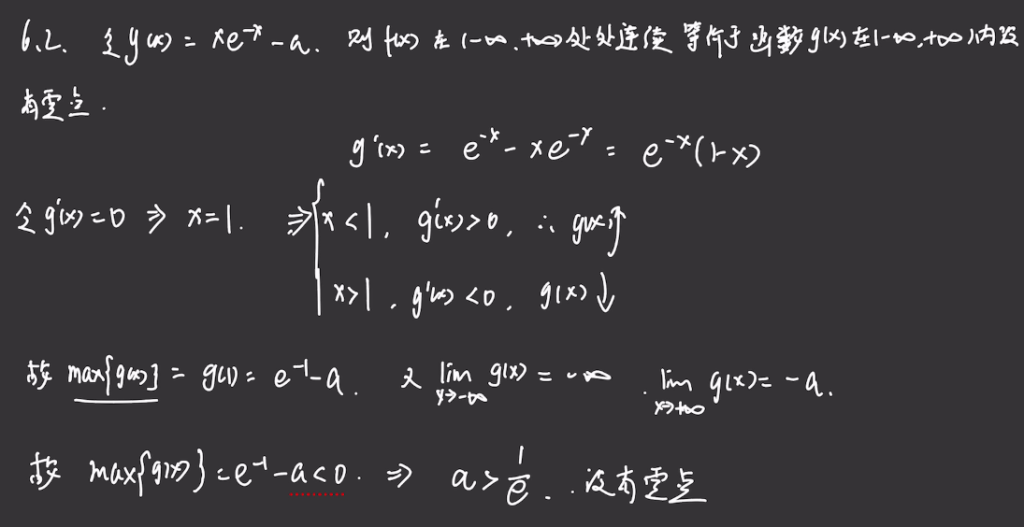 6.2. 令g(x) = xe^{-x} - a. 则 f(x) 在 (-∞,+∞)处处连续 等价于 函数 g(x) 在(-∞,+∞)内没
有零点.
g'(x) = e^{-x} - xe^{-x} = e^{-x}(1-x)
令 g'(x)=0 ⇒ x=1. ⇒ { x<1, g'(x)>0, ∴ g(x)↑
x>1, g'(x)<0, g(x)↓
故 max{g(x)} = g(1) = e^{-1}-a. 又 lim_{x→-∞} g(x) = -∞. lim_{x→+∞} g(x) = -a.
故 max{g(x)} = e^{-1}-a<0. ⇒ a>1/e. ∴ 没有零点